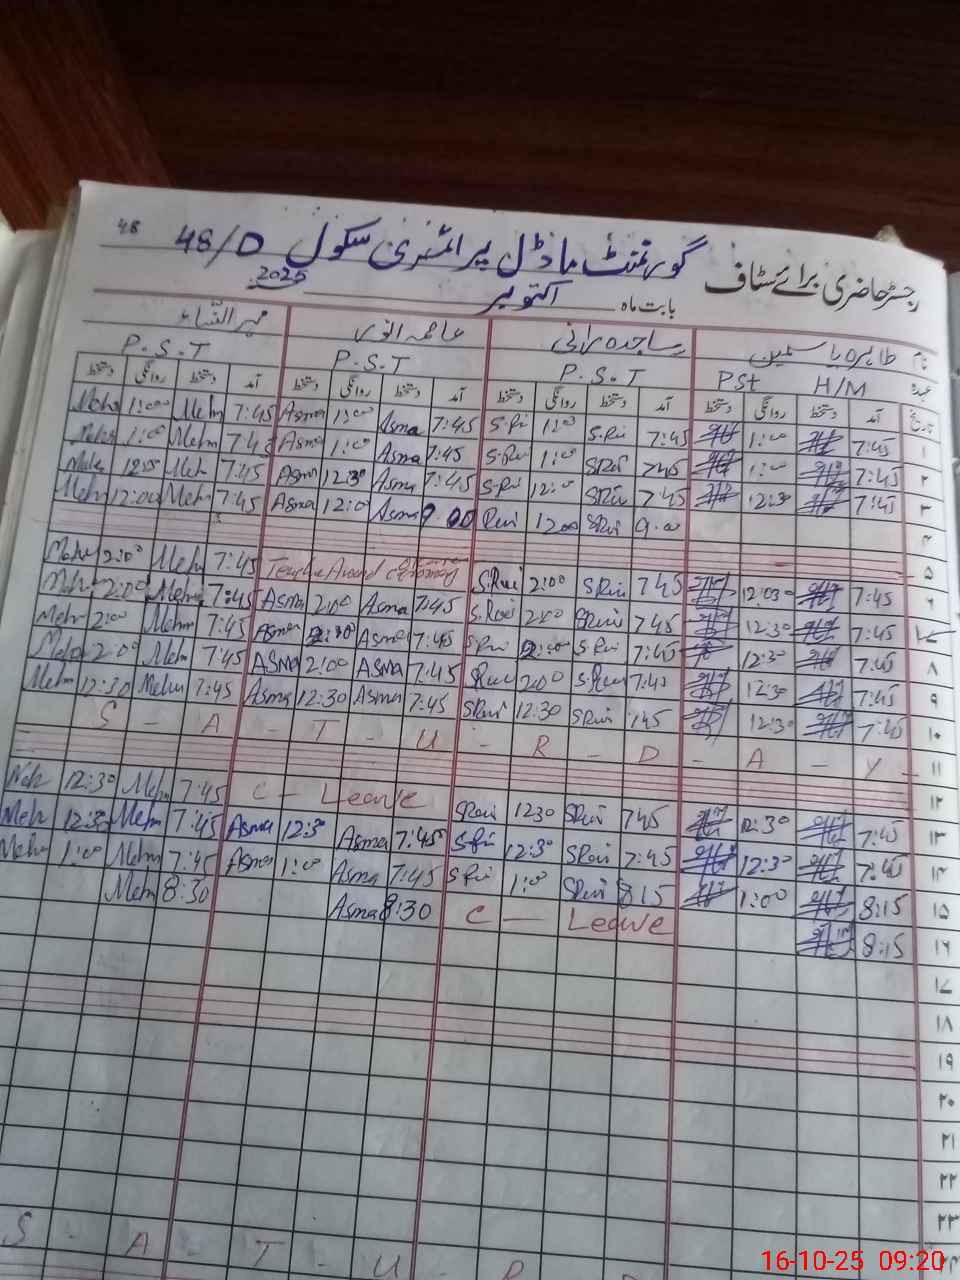 48
گورنمنٹ ماڈل پرائمری سکول 48/D
رجسٹر حاضری برائے سٹاف بابت ماہ اکتوبر 2025
نام طاہرہ یاسمین ساجدہ رانی مہر النساء
عہدہ PSt H/M P.S.T P.S.T P.S.T
تاریخ آمد دستخط روانگی دستخط آمد دستخط روانگی دستخط آمد دستخط روانگی دستخط آمد دستخط روانگی دستخط
۱ 7:45 1:00 7:45 S.Rui 1:00 S.Rui 7:45 Asma 1:00 Asma 7:45 Mehr 1:00 Mehr
۲ 7:45 1:00 7:45 S.Rui 1:00 S.Rui 7:45 Asma 1:00 Asma 7:45 Mehr 1:00 Mehr
۳ 7:45 12:30 7:45 S.Rui 12:00 S.Rui 7:45 Asma 12:30 Asma 7:45 Meh Mehr
۴ 9:00 SRui 1200 Rui 9:00 Asma 12:00 Asma 7:45 Mehr 12:00 Mehr
۵
۶ 7:45 12:03 7:45 S.Rui 2:00 S.Rui 7:45 Mehr 2:00 Mehr
۷ 7:45 12:30 7:45 SRui 2:00 S.Rui 7:45 Asma 2:00 Asma 7:45 Mehr 2:00 Mehr
۸ 7:45 12:30 7:45 S.Rui 2:00 S.Rui 7:45 Asma Asma 7:45 Mehr 2:00 Mehr
۹ 7:45 12:30 S.Rui 2:00 SRui 7:45 ASMA 2:00 ASMA 7:45 Mehr 2:00 Mehr
۱۰ 7:45 12:30 745 SRui 12:30 SRui 7:45 Asma 12:30 Asma 7:45 Mehr 12:30 Mehr
۱۱ S - A - T - U - R - D - A - Y -
۱۲
۱۳ 7:45 12:30 745 SRui 1230 SRui C - Leave 7:45 Mehr 12:30 Meh
۱۴ 7:45 12:30 7:45 SRui 12:30 7:45 Asma 12:30 Asma 7:45 Mehr 12:30 Meh
۱۵ 8:15 1:00 8:15 SRui 1:00 S.Rui 7:45 Asma 1:00 Asma 7:45 Mehr 1:00 Mehr
۱۶ 8:15 C - Leave 8:30 Asma 8:30 Mehr
۱۷
۱۸
۱۹
۲۰
۲۱
۲۲
۲۳
S - A - T - U - R
16-10-25 09:20